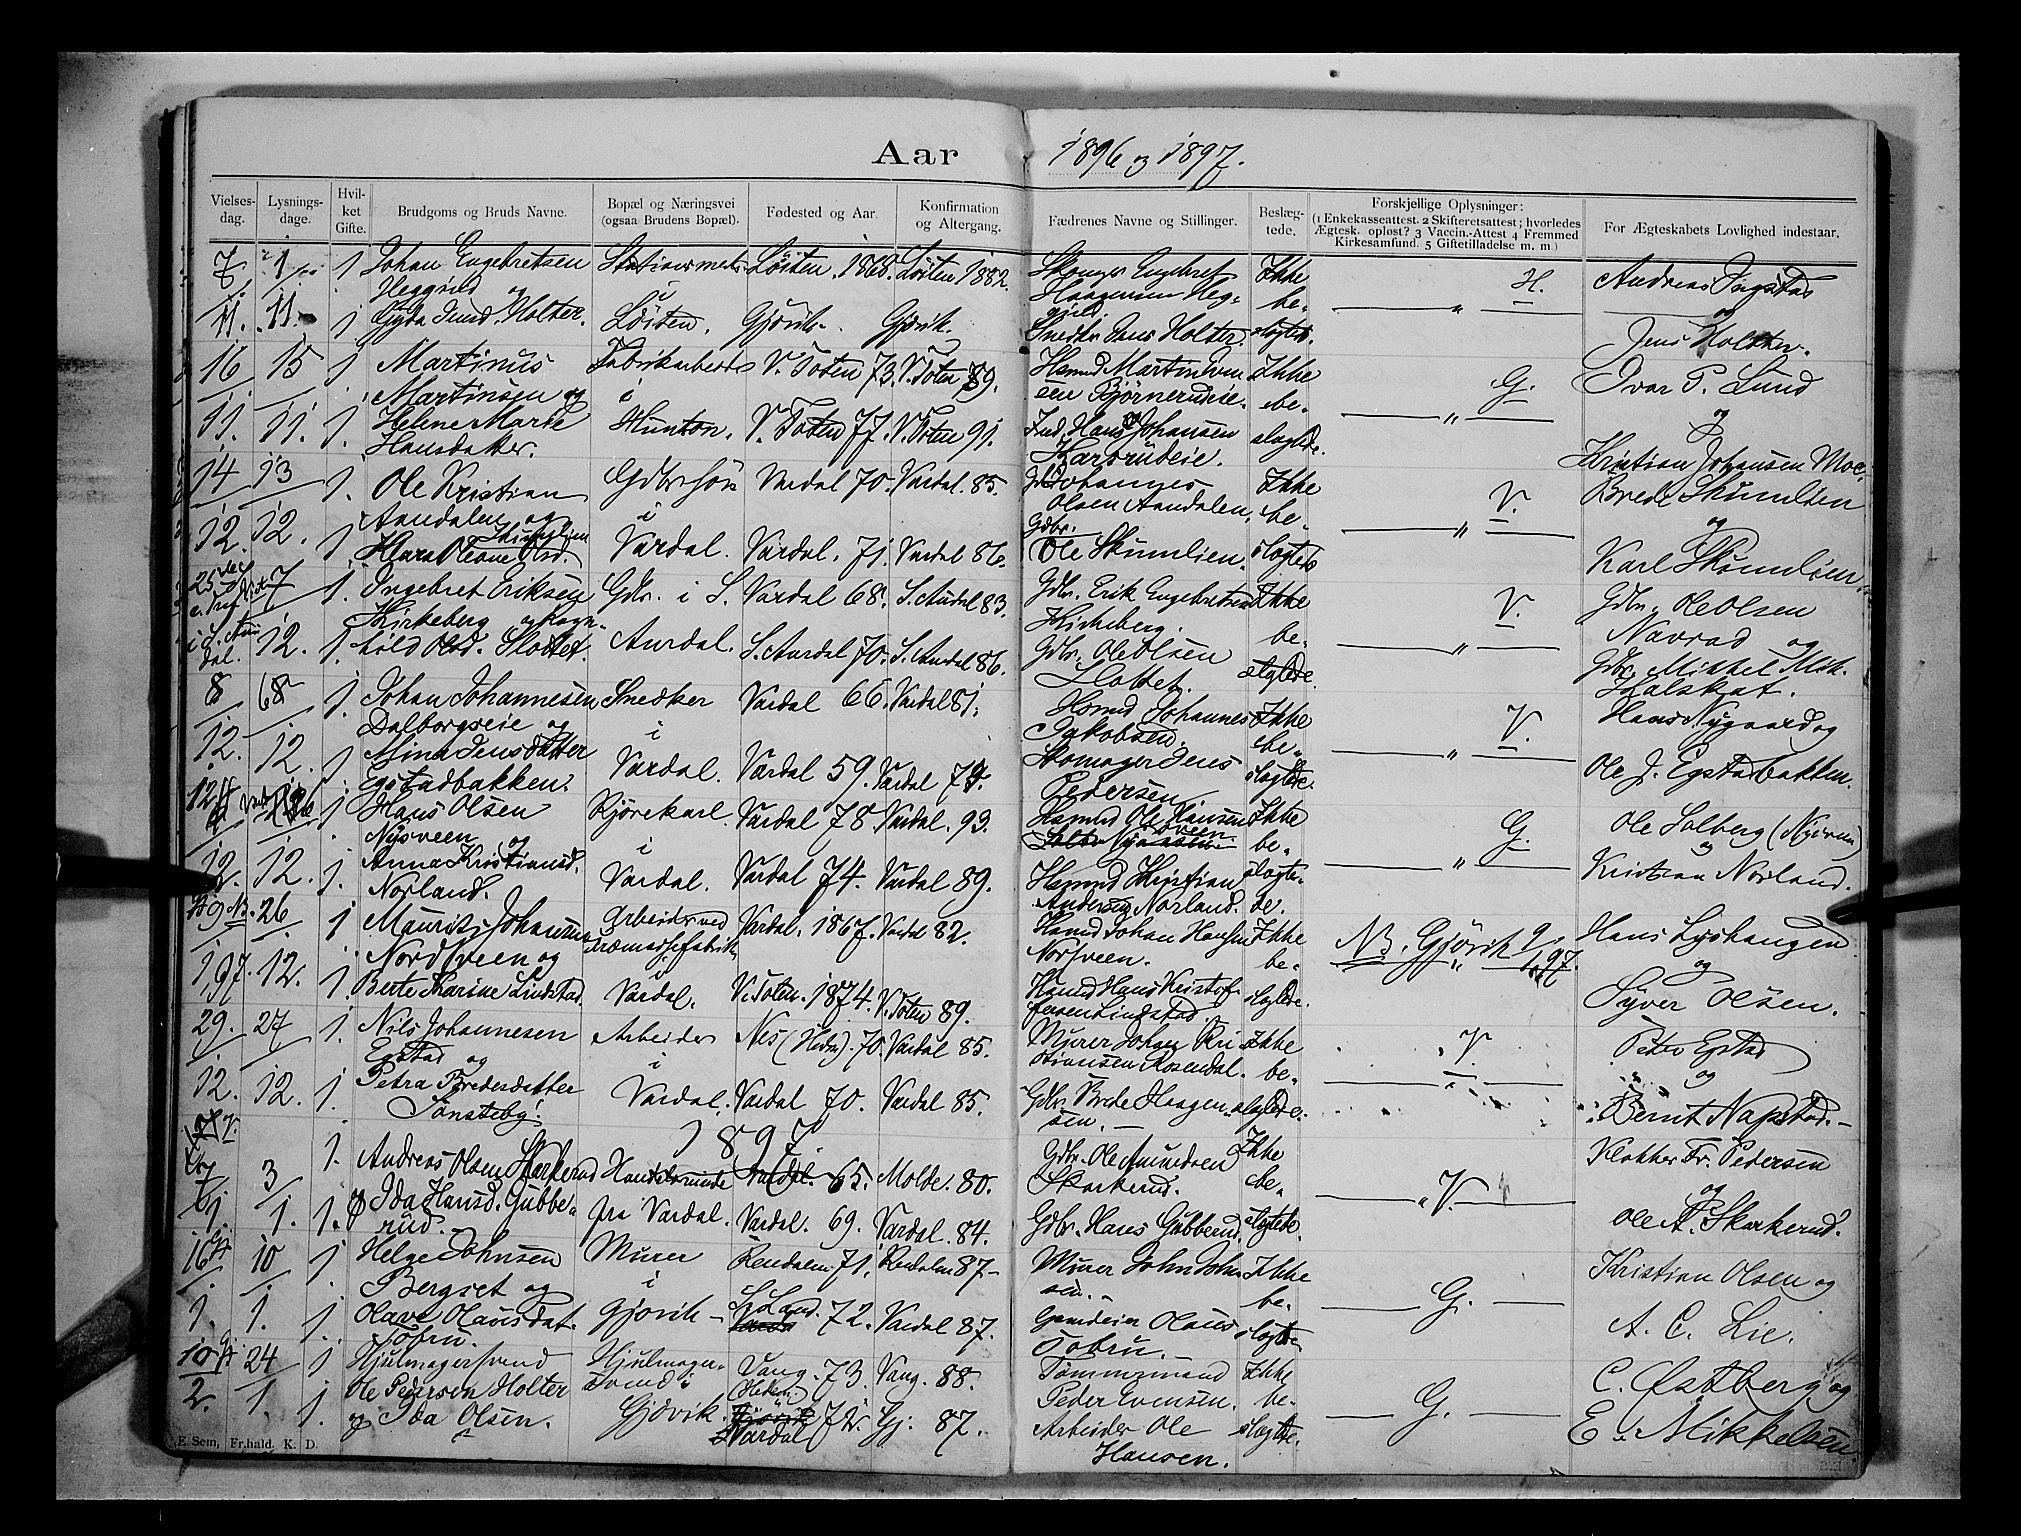 Aar 1896 og 1897.
Vielses-dag. Lysnings-dage. Hvil-ket Gifte. Brudgoms og Bruds Navne. Bopæl og Næringsvei (ogsaa Brudens Bopæl). Fødested og Aar. Konfirmation og Altergang. Fædrenes Navne og Stillinger. Beslæg-tede. Forskjellige Oplysninger: (1 Enkekasseattest. 2 Skifteretsattest; hvorledes Ægtesk. opløst? 3 Vaccin.-Attest 4 Fremmed Kirkesamfund. 5 Giftetilladelse m. m.) For Ægteskabets Lovlighed indestaar.
7 1 1 Johan Engebretsen Løiten. 1868. Løiten 1882. Engebret Ikke H. Andreas
Heggrud og i Haagensen Heg- be- og
11. 11. 1 Gyda Jensd. Holter. Løiten. Gjøvik. Gjøvik. Snedker Jens Holter. slægtede. Jens Holther.
16 15 1 Martinus V. Toten 73. V. Toten 89. Husmd Martin Ikke G. Ivar P. Lund
Martinsen og i sen Bjørnerudeie. be- " og
11. 11. 1. Helene Marte Hunton. V. Toten 77. V. Toten 91. Ind. Hans Johansen slægtede.
Hansdatter. Kristian Johansen Moe.
14 13 1. Ole Kristian Gdbrsøn Vardal 70. Vardal. 85. Johannes Ikke V. Brede Skumlien
Aandalen og i Olsen Aandalen. be- " og
12. 12. 1 Skumlien Vardal. Vardal. 71. Vardal 86. Gdbr. Ole Skumlien. slægtede Karl Skumlien.
25 7 1. Ingebret Eriksen Gdbr. i S. Vardal 68. S. Aurdal 83. Gdbr. Erik Engebretsen Ikke V. Gdbr. Ole Olsen
Kirkeberg og Ragn- Kirkeberg. be- Navrad og
i S. Aur-dal. 12. 1. hild Olsd. Slottet. Aurdal. S. Aurdal 70. S. Aurdal 86. Gdbr. Ole Olsen slægtede. " Gdbr. Mikkel Mik.
8 68 1. Johan Johannesen Snedker Vardal 66. Vardal 81. Husmd Johannes Ikke V. Hans Nygaard og
Dalborgseie og i Jakobsen. be-
12. 12. 1 Mina Jensdatter Vardal. Vardal 59. Vardal 74. Skomager Jens slægtede. " Ole J. Egstadbakken.
Egstadbakken. Pedersen
1 Hans Olsen Kjørekarl Vardal 78 Vardal. 93. Husmd Ole Hansen Ikke G. Ole Solberg (Nysveen)
Nysveen og i be- og
12. 12. 1. Anna Kristiansd. Vardal. Vardal 74. Vardal 89. Husmd Kristian slægte- " Kristian Norland.
Norland. Andersen Norland. de.
9 NB. 26 1 Mauritz Johansen Arbeider ved Vardal. 1867. Vardal 82. Husmd Johan Hansen Ikke NB. Gjøvik 9/1 97. Hans Lyshaugen
Nordsveen og Norsveen. be- og
1/97. 12. 1. Berte Karine Lindstad. Vardal. V. Toten. 1874. V. Toten 89. Husmd Hans Kristof- slægtede. Syver Olsen.
fersen Lindstad.
29. 27 1. Nils Johannesen Arbeider Nes (Hedm). 70. Vardal 85. Murer Johan Kri- Ikke V. Peder Egstad
Egstad og i stiansen Rosendal. be- og
12. 12. 1. Petra Bredesdatter Vardal. Vardal 70. Vardal 85. Gdbr Brede Haagen- slægtede. Bernt Napstad.
Tønsteby. sen.
1897
3 1. Andreas Olsen Skarkerud Vardal 65. Molde. 80. Gdbr. Ole Amundsen Ikke Klokker Fr. Pedersen
Skarkerud. be- V. og
1. 1. 1. og Ida Hansd. Gubbe- fra Vardal. Vardal. 69. Vardal. 84. Gdbr. Hans Gubberud. slægtede. Ole A. Skarkerud.
rud.
16 10 1 Helge Johnsen Murer Rendalen. 71. Rendalen 87. Murer John John- Ikke Kristian Olsen og
Bergset og i sen. be- G.
1. 1. 1. Olave Olausdat. Gjøvik S. Land. 72. Vardal 87. Olaus slægtede A. C. Lie.
Tobru. Tobru.
10 24 1 Hjulmagersvend Hjulmager- Vang. 73. Vang. 88. Tømmermand Ikke C. Østberg og
2. 1. 1 Ole Pedersen Holter svend i (Hedem.) Peder Evensen. be- G.
1. og Ida Olsen. Gjøvik. Vardal 72. Gj. 87. Arbeider Ole slægtede. E. Mikkelsen.
Hansen.
E. Sem, Fr.hald. K. D.